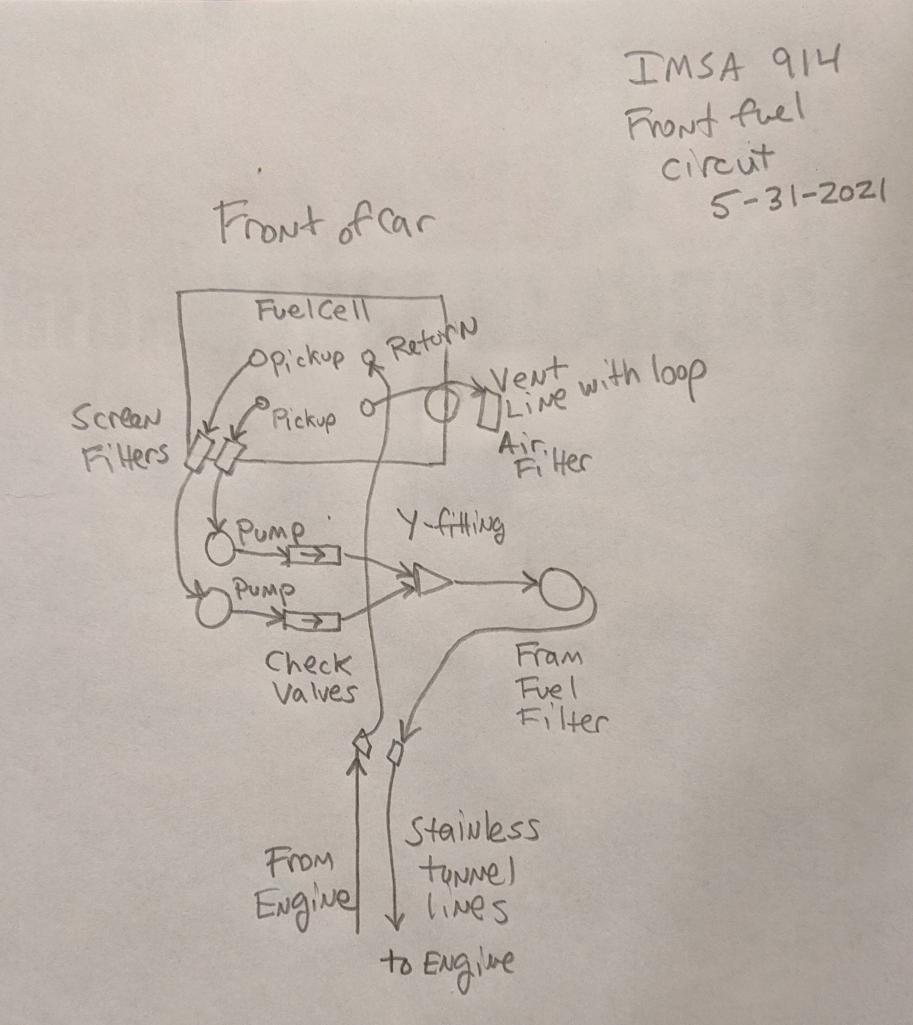 IMSA 914
Front fuel
circut
5-31-2021
Front of car
Fuel Cell
Pickup
Return
Pickup
Vent
Line with loop
Air
Filter
Screen
Filters
Pump
Y-fitting
Pump
Check
Valves
Fram
Fuel
Filter
From
Engine
Stainless
tunnel
lines
to Engine